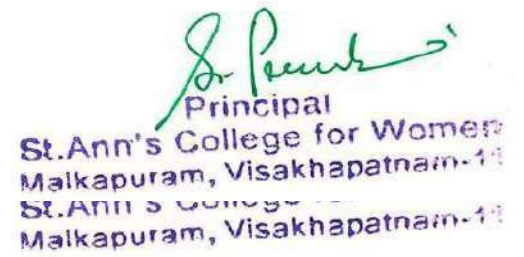 Sr.
Principal
St.Ann's College for Women
Malkapuram, Visakhapatnam-11
St.Ann's College for
Malkapuram, Visakhapatnam-11